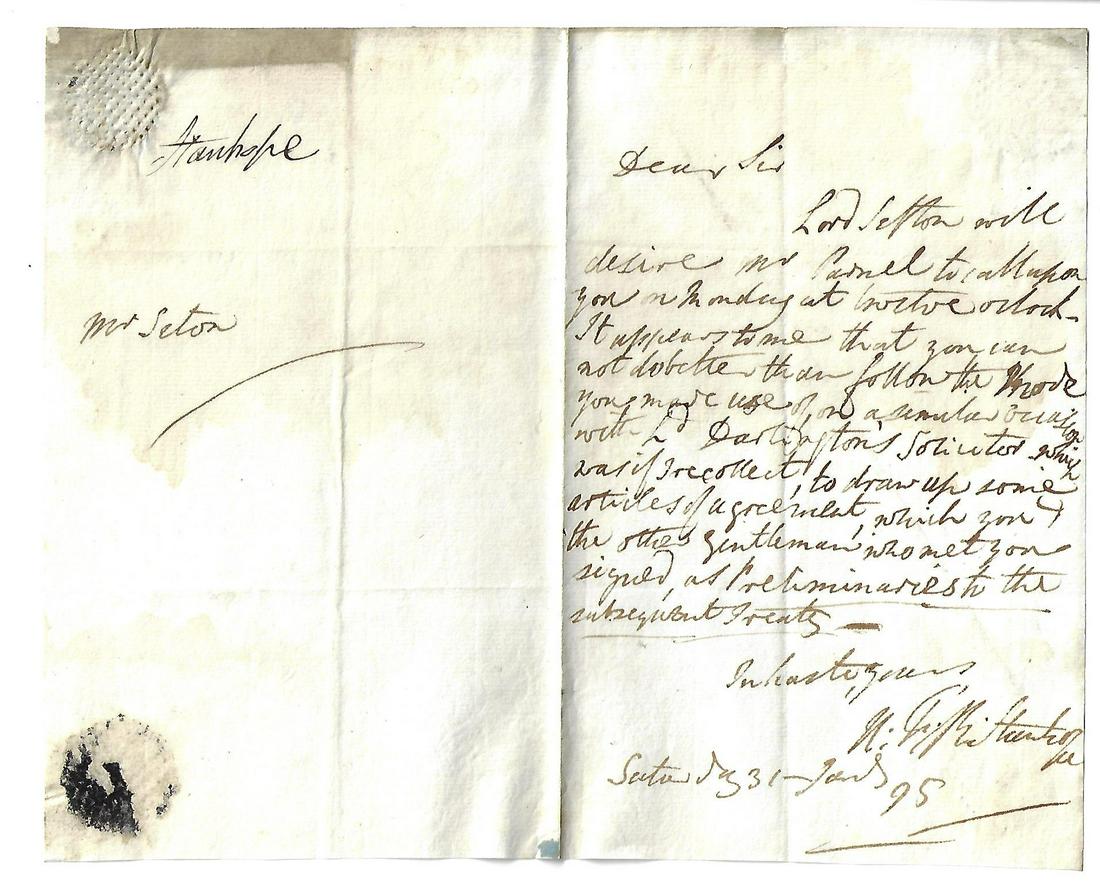 Stanhope
Mr Seton
Dear Sir
Lord Sefton will
desire Mr Parnel to call upon
you on Monday at twelve oclock -
It appears to me that you can
not do better than follow the Mode
you made use of, on a similar occasion
with Ld Darlington's Solicitor which
was if I recollect, to draw up some
articles of agreement, which you &
the other gentleman who met you
signed, as Preliminaries to the
subsequent Treaty —
In haste, yours
Stanhope
Saturday 31 - Jany 95